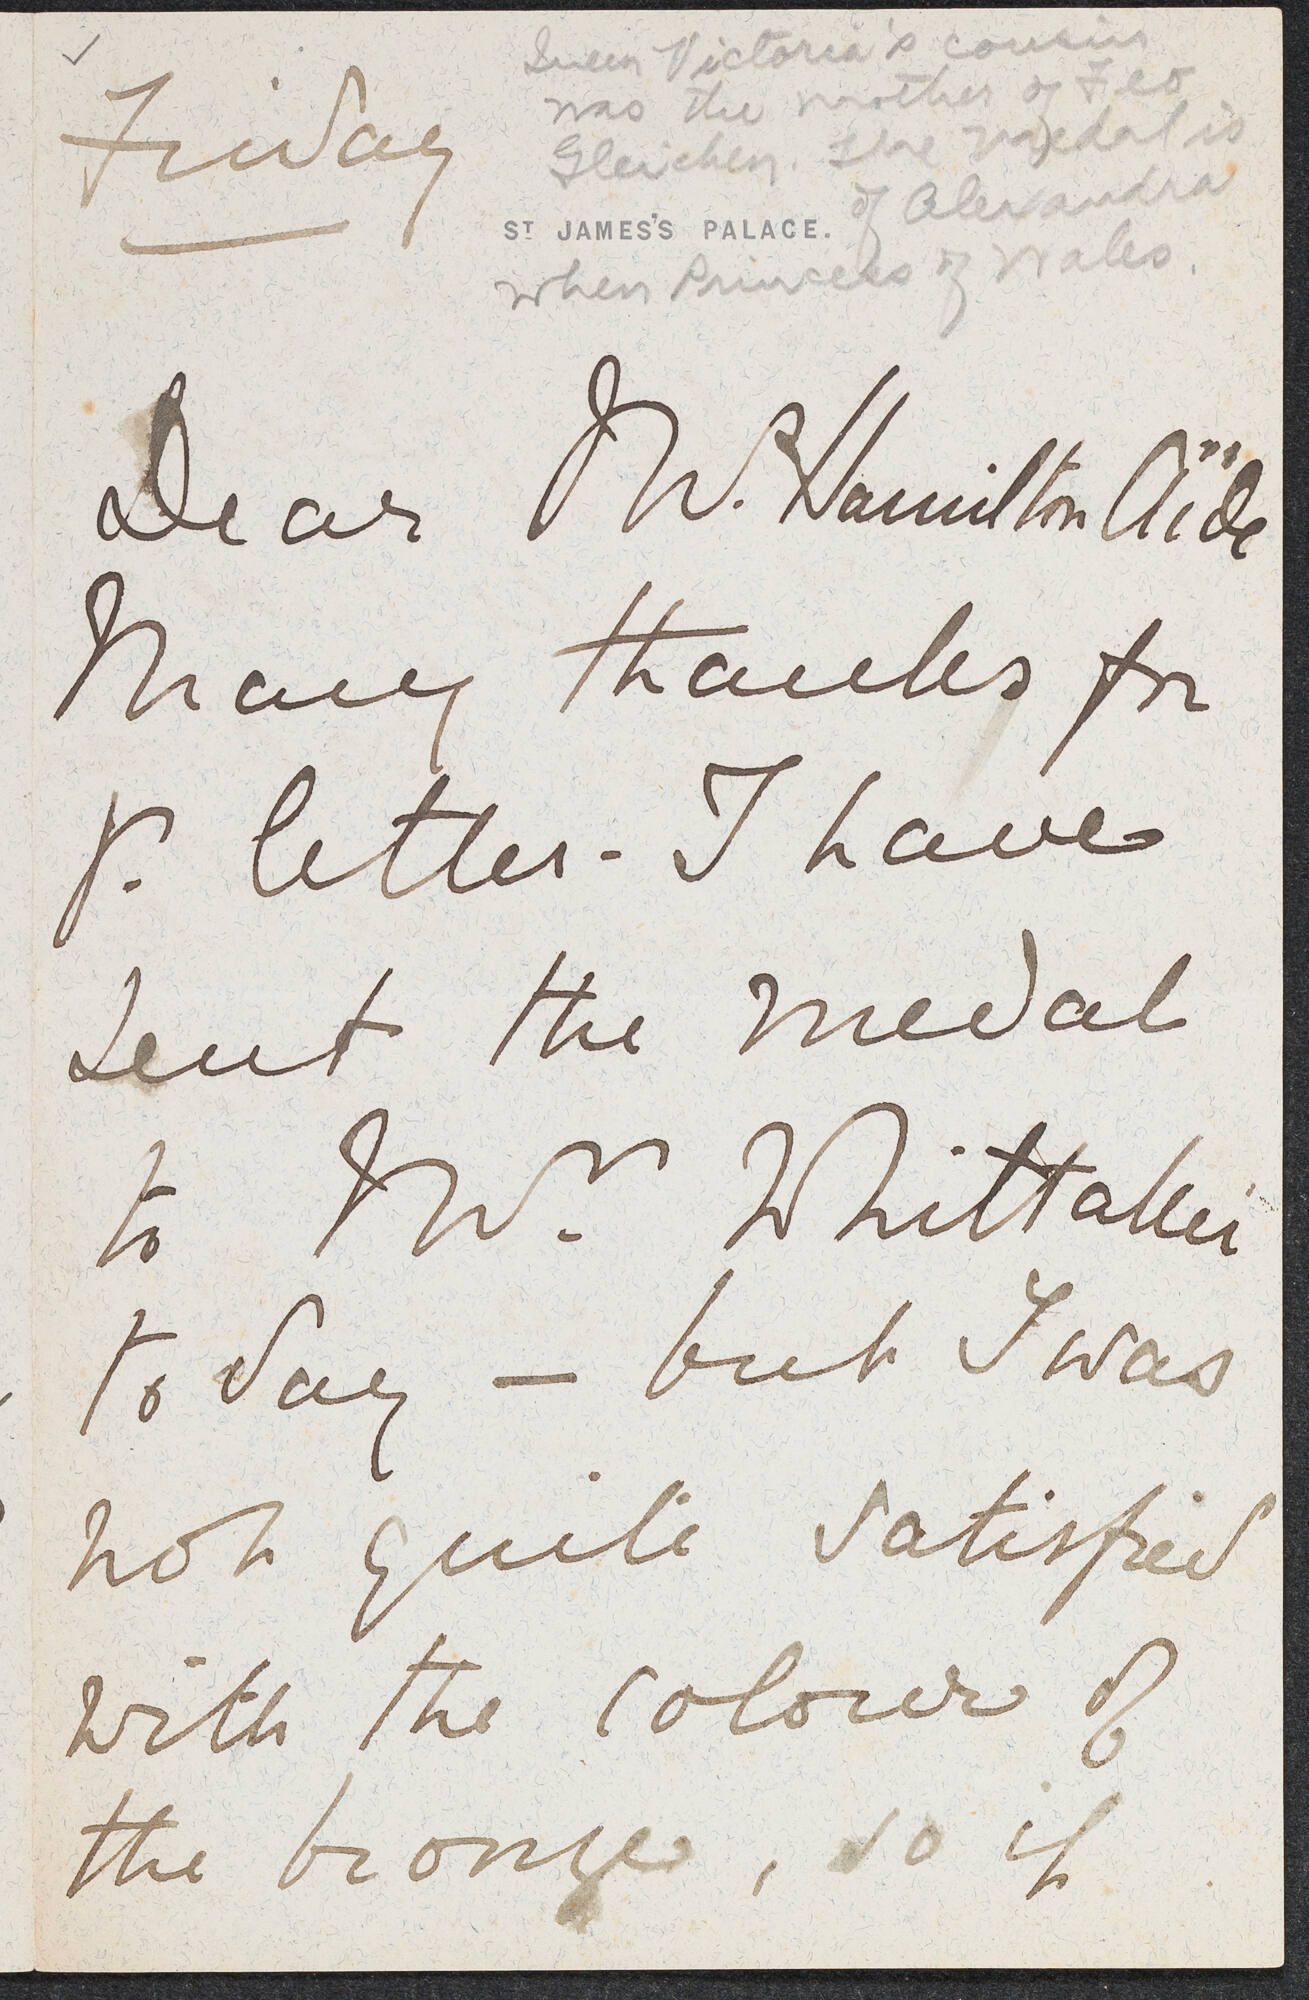 Friday
Queen Victoria's cousin
was the mother of Feo
Gleichen. The medal is
of Alexandra
ST JAMES'S PALACE.
when Princess of Wales.
Dear Mr. Hamilton Aïdé
Many thanks for
yr. letter - I have
sent the medal
to Mr. Whittaker
to day — but I was
not quite satisfied
with the colour of
the bronze, so if